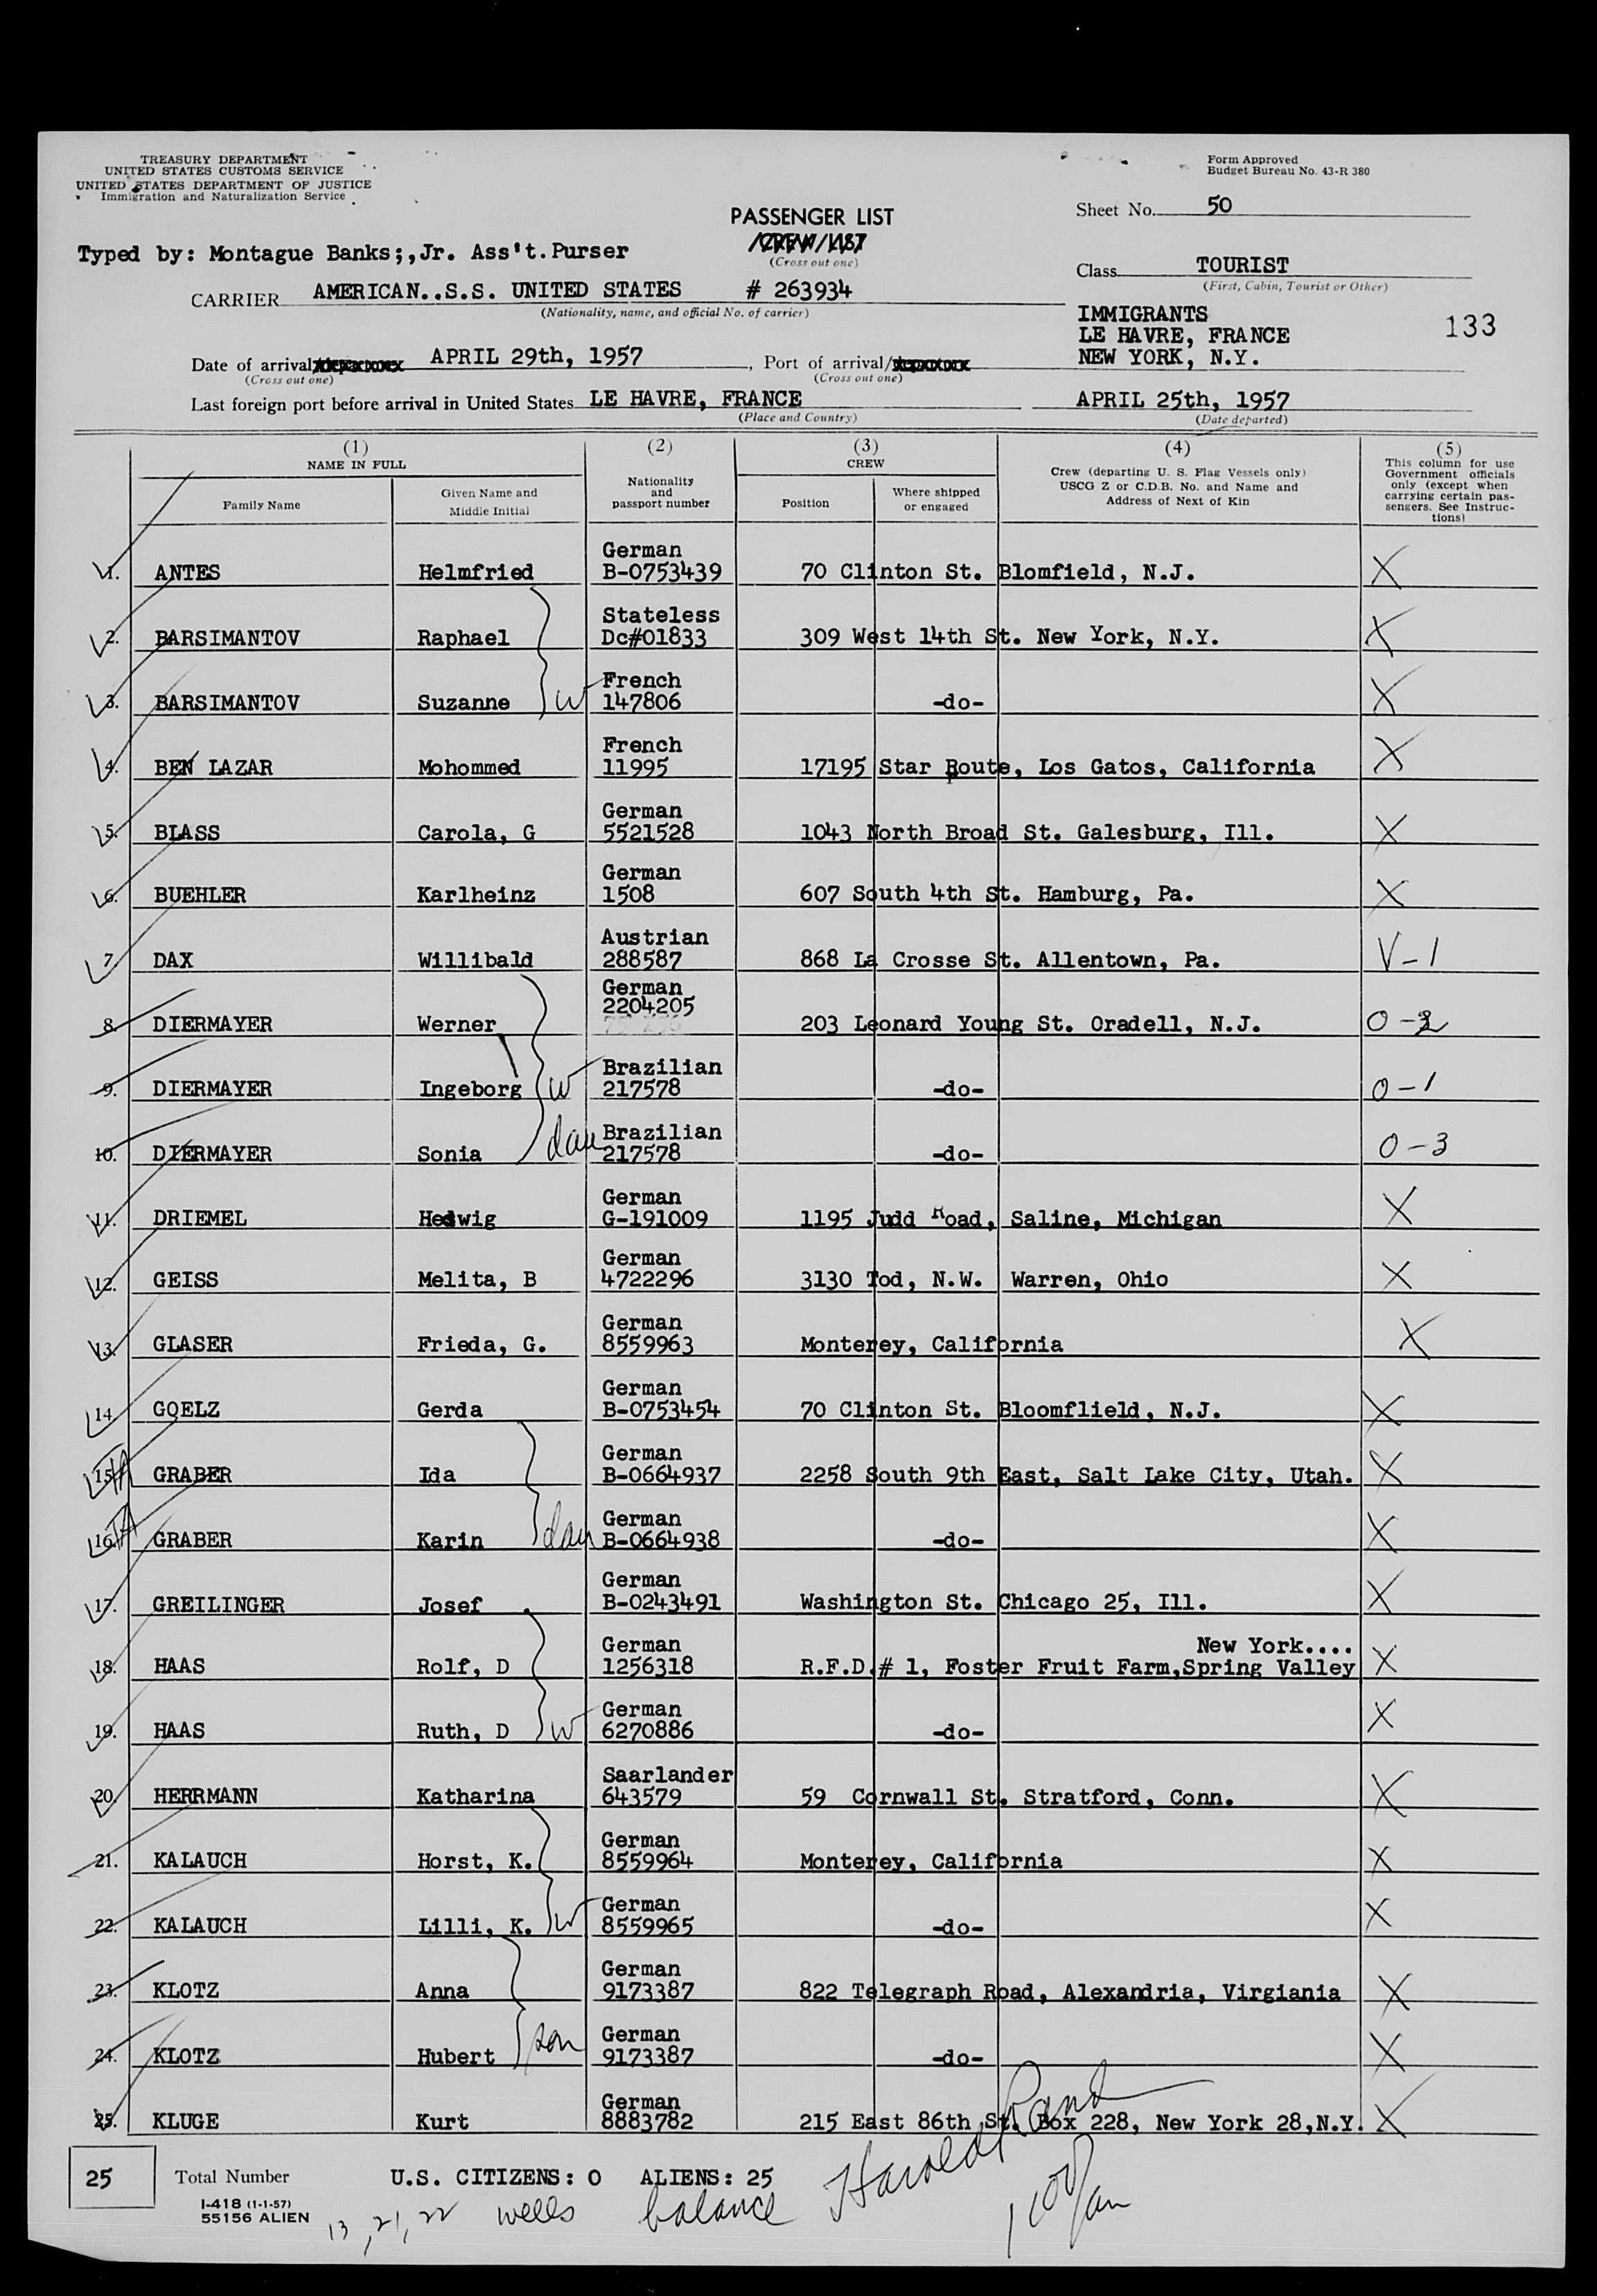 TREASURY DEPARTMENT
UNITED STATES CUSTOMS SERVICE
UNITED STATES DEPARTMENT OF JUSTICE
Immigration and Naturalization Service
Form Approved
Budget Bureau No. 43-R 380
PASSENGER LIST
/CREW/LIST
(Cross out one)
Sheet No. 50
Typed by: Montague Banks;,Jr. Ass't.Purser
Class TOURIST
(First, Cabin, Tourist or Other)
CARRIER AMERICAN..S.S. UNITED STATES # 263934
(Nationality, name, and official No. of carrier)
IMMIGRANTS
LE HAVRE, FRANCE
NEW YORK, N.Y.
133
Date of arrival APRIL 29th, 1957, Port of arrival/
(Cross out one) (Cross out one)
Last foreign port before arrival in United States LE HAVRE, FRANCE APRIL 25th, 1957
(Place and Country) (Date departed)
(1) (2) (3) (4) (5)
NAME IN FULL
Family Name
Given Name and
Middle Initial
Nationality
and
passport number
CREW
Position
Where shipped
or engaged
Crew (departing U. S. Flag Vessels only)
USCG Z or C.D.B. No. and Name and
Address of Next of Kin
This column for use
Government officials
only (except when
carrying certain pas-
sengers. See Instruc-
tions)
German
1. ANTES Helmfried B-0753439 70 Clinton St. Blomfield, N.J. X
Stateless
2. BARSIMANTOV Raphael Dc#01833 309 West 14th St. New York, N.Y. X
French
3. BARSIMANTOV Suzanne W 147806 -do- X
French
4. BEN LAZAR Mohommed 11995 17195 Star Route, Los Gatos, California X
German
5. BLASS Carola, G 5521528 1043 North Broad St. Galesburg, Ill. X
German
6. BUEHLER Karlheinz 1508 607 South 4th St. Hamburg, Pa. X
Austrian
7. DAX Willibald 288587 868 La Crosse St. Allentown, Pa. V-1
German
2204205
8. DIERMAYER Werner 203 Leonard Young St. Oradell, N.J. O-2
Brazilian
9. DIERMAYER Ingeborg W 217578 -do- O-1
Brazilian
10. DIERMAYER Sonia dau 217578 -do- O-3
German
11. DRIEMEL Hedwig G-191009 1195 Judd Road, Saline, Michigan X
German
12. GEISS Melita, B 4722296 3130 Tod, N.W. Warren, Ohio X
German
13. GLASER Frieda, G. 8559963 Monterey, California X
German
14. GOELZ Gerda B-0753454 70 Clinton St. Bloomflield, N.J. X
German
15. GRABER Ida B-0664937 2258 South 9th East, Salt Lake City, Utah. X
German
16. GRABER Karin dau B-0664938 -do- X
German
17. GREILINGER Josef . B-0243491 Washington St. Chicago 25, Ill. X
German New York....
18. HAAS Rolf, D 1256318 R.F.D.# 1, Foster Fruit Farm,Spring Valley X
German
19. HAAS Ruth, D W 6270886 -do- X
Saarlander
20. HERRMANN Katharina 643579 59 Cornwall St. Stratford, Conn. X
German
21. KALAUCH Horst, K. 8559964 Monterey, California X
German
22. KALAUCH Lilli, K. W 8559965 -do- X
German
23. KLOTZ Anna 9173387 822 Telegraph Road, Alexandria, Virgiania X
German
24. KLOTZ Hubert son 9173387 -do- X
German
25. KLUGE Kurt 8883782 215 East 86th St. Box 228, New York 28,N.Y. X
25 Total Number U.S. CITIZENS: 0 ALIENS: 25
I-418 (1-1-57)
55156 ALIEN
13, 21, 22 wells balance Harold Rand